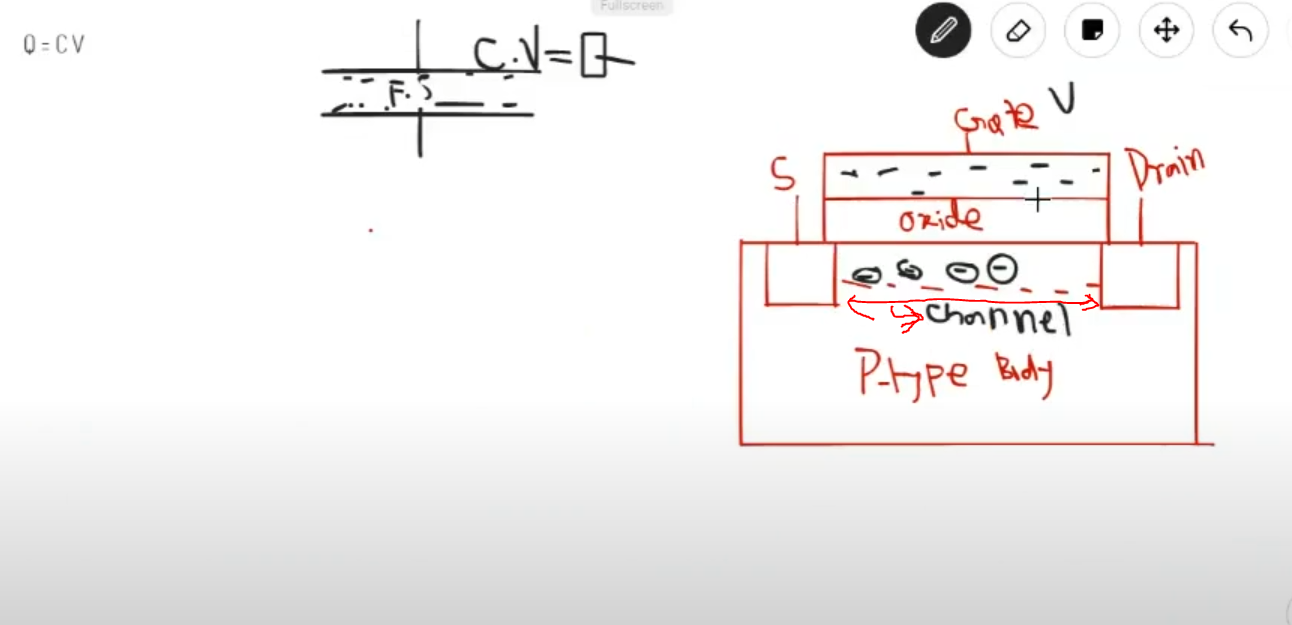 Fullscreen
Q=CV
C.V=Q
F.S
Gate V
S
Drain
oxide
channel
P-type Body